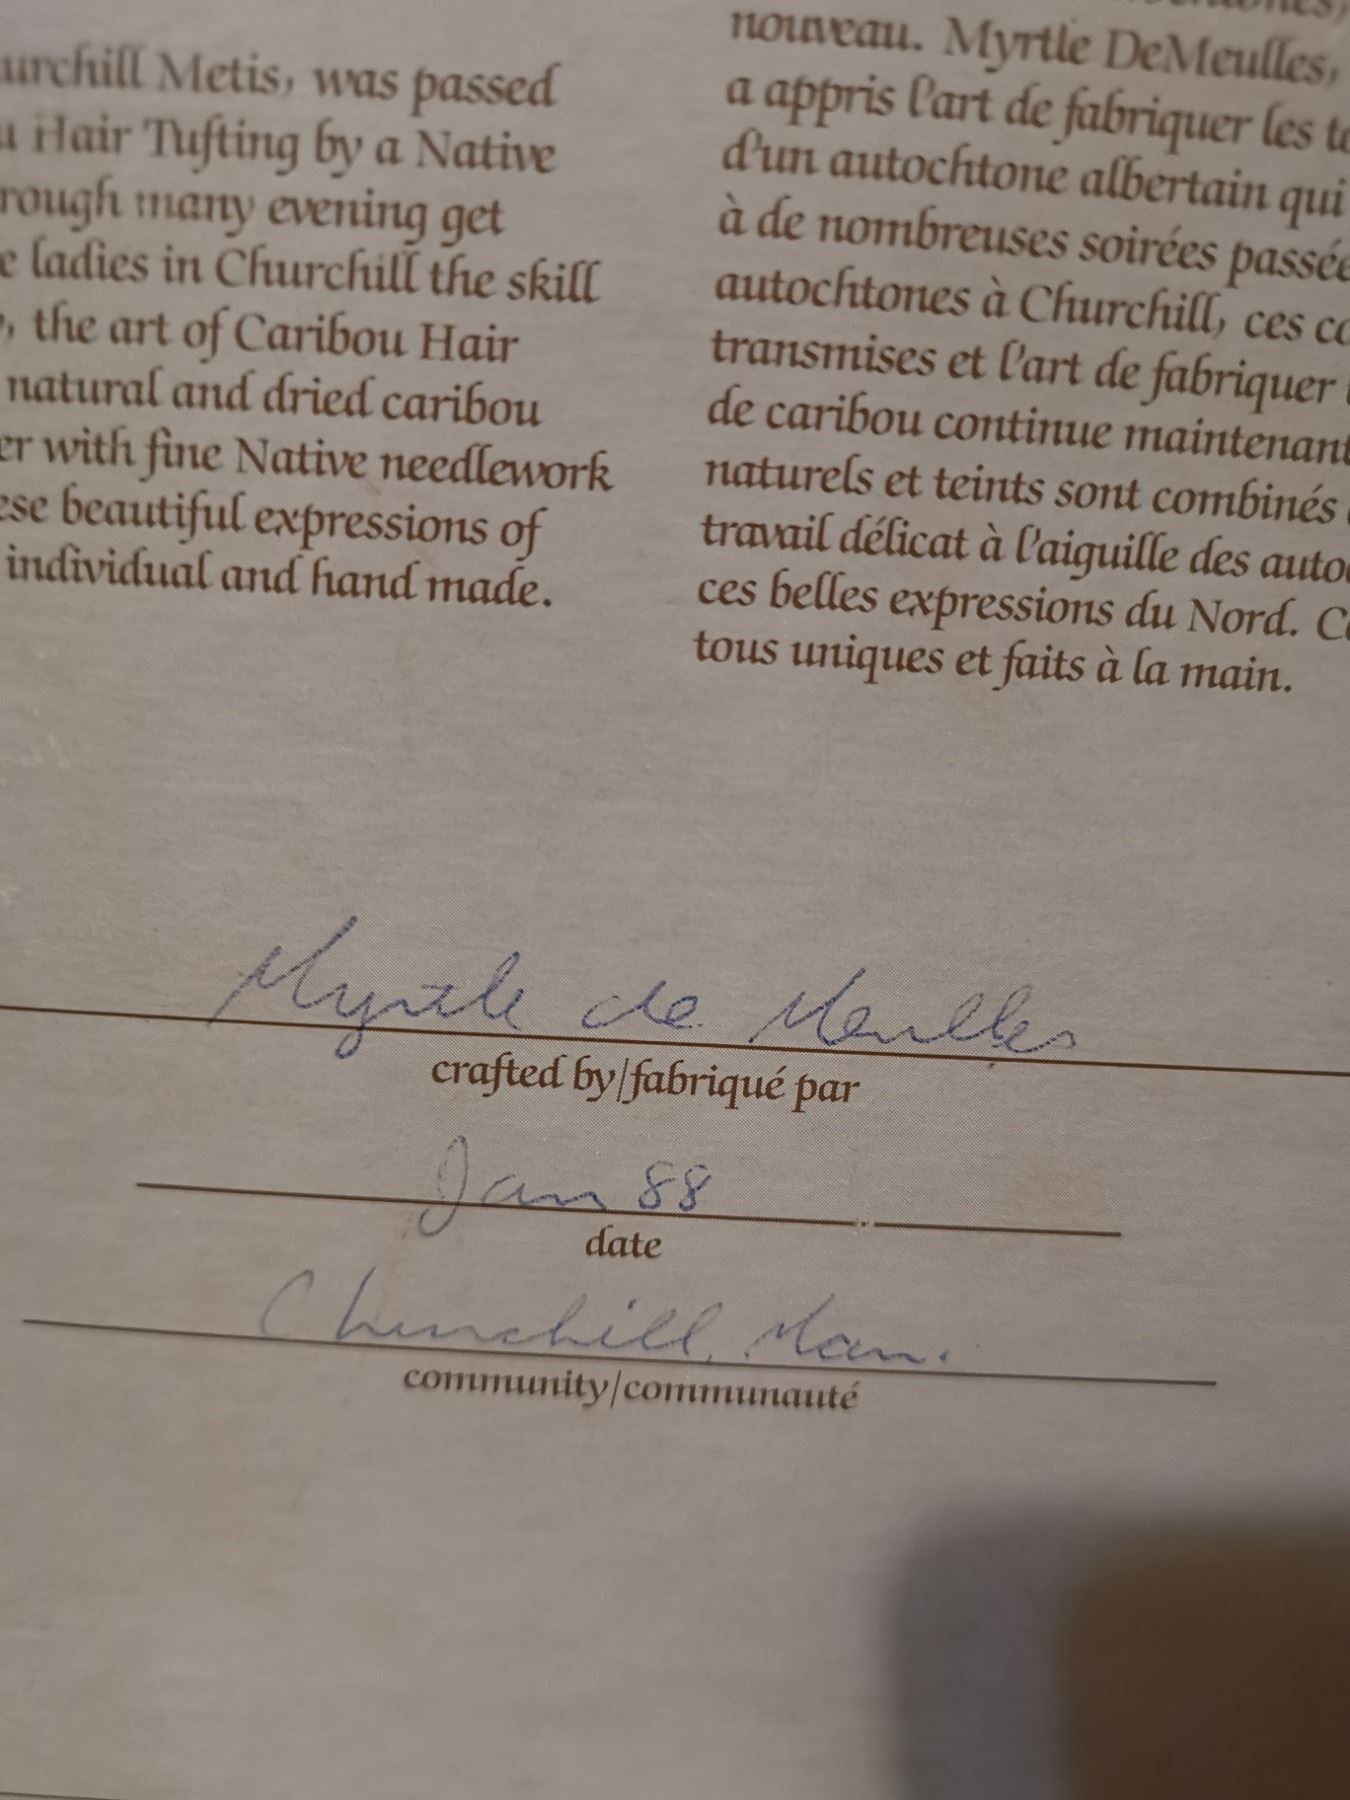 Churchill Metis, was passed
Hair Tufting by a Native
through many evening get
ladies in Churchill the skill
the art of Caribou Hair
natural and dried caribou
with fine Native needlework
beautiful expressions of
individual and hand made.
nouveau. Myrtle DeMeulles,
a appris l'art de fabriquer les
d'un autochtone albertain qui
à de nombreuses soirées
autochtones à Churchill, ces
transmises et l'art de fabriquer
de caribou continue maintenant
naturels et teints sont combinés
travail délicat à l'aiguille des
ces belles expressions du Nord.
tous uniques et faits à la main.
Myrtle de Meulles
crafted by/fabriqué par
Jan 88
date
Churchill, Man.
community/communauté